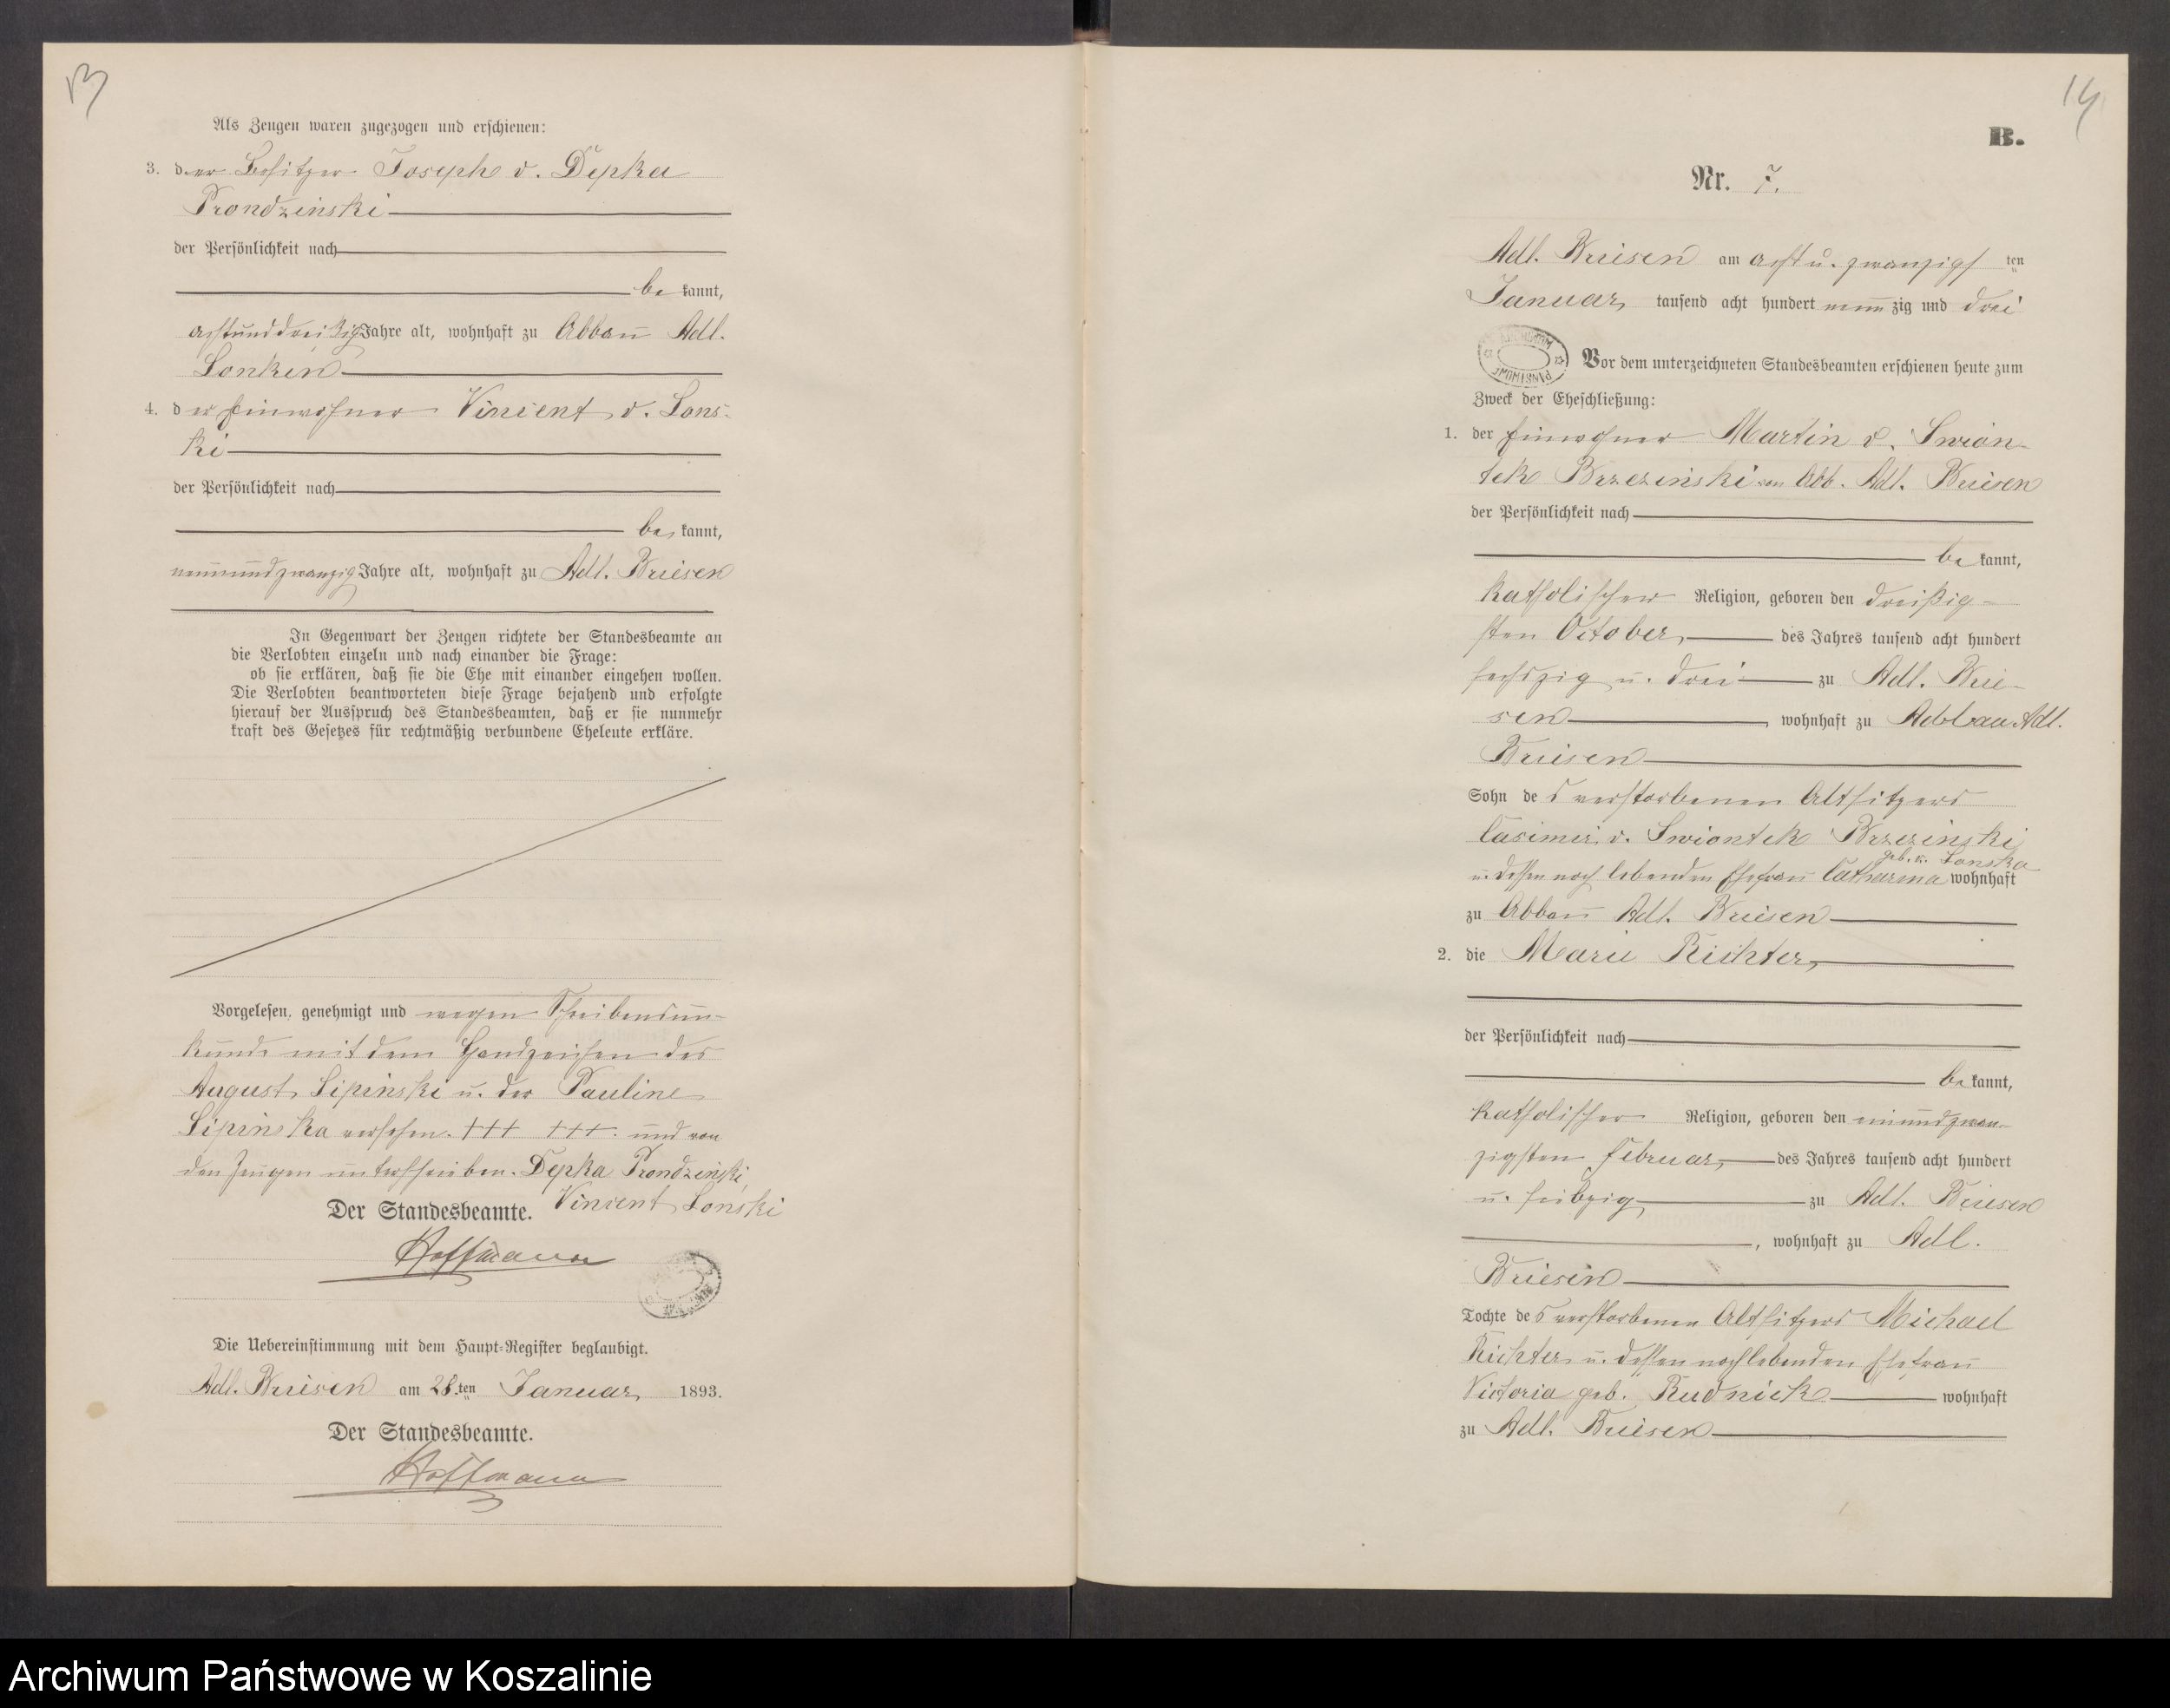 13
Als Zeugen waren zugezogen und erschienen:
3. der Besitzer Joseph v. Depka
Prondzinski
der Persönlichkeit nach
be kannt,
achtunddreißig Jahre alt, wohnhaft zu Abbau Adl.
Lonken
4. der Einwohner Vincent v. Lons-
ki
der Persönlichkeit nach
be kannt,
neunundzwanzig Jahre alt, wohnhaft zu Adl. Briesen
In Gegenwart der Zeugen richtete der Standesbeamte an
die Verlobten einzeln und nach einander die Frage:
ob sie erklären, daß sie die Ehe mit einander eingehen wollen.
Die Verlobten beantworteten diese Frage bejahend und erfolgte
hierauf der Ausspruch des Standesbeamten, daß er sie nunmehr
kraft des Gesetzes für rechtmäßig verbundene Eheleute erkläre.
Vorgelesen, genehmigt und wegen Schreibensun-
kunde mit dem Handzeichen des
August Lipinski u. der Pauline
Lipinska versehen. +++ +++. und von
den Zeugen unterschrieben. Depka Prondzinski,
Vincent Lonski
Der Standesbeamte.
Hoffmann
Die Uebereinstimmung mit dem Haupt-Register beglaubigt.
Adl. Briesen am 28.ten Januar 1893.
Der Standesbeamte.
Hoffmann
14
B.
Nr. 7.
Adl. Briesen am acht u. zwanzigs ten
Januar tausend acht hundert neun zig und drei
Vor dem unterzeichneten Standesbeamten erschienen heute zum
Zweck der Eheschließung:
1. der Einwohner Martin v. Swion-
tek Brzezinski Abb. Adl. Briesen
der Persönlichkeit nach
be kannt,
katholischer Religion, geboren den dreißig-
sten October, des Jahres tausend acht hundert
sechszig u. drei zu Adl. Brie-
sen, wohnhaft zu Abbau Adl.
Briesen
Sohn des verstorbenen Altsitzers
Casimir v. Swiontek Brzezinski
geb. v. Lonska
u. dessen noch lebenden Ehefrau Catharina wohnhaft
zu Abbau Adl. Briesen
2. die Marie Richter,
der Persönlichkeit nach
be kannt,
katholischer Religion, geboren den einundzwan-
zigsten Februar, des Jahres tausend acht hundert
u. siebzig zu Adl. Briesen
, wohnhaft zu Adl.
Briesen
Tochte des verstorbenen Altsitzers Michael
Richter u. dessen noch lebenden Ehefrau
Victoria geb. Rudnick wohnhaft
zu Adl. Briesen
Archiwum Państwowe w Koszalinie